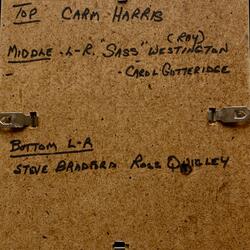 TOP CARM HARRIS
(RAY)
MIDDLE - L-R. "SASS" WESTINGTON
- CAROL GUTTERIDGE
BOTTOM L-R
STEVE BRADFORD ROSS QUIGLEY